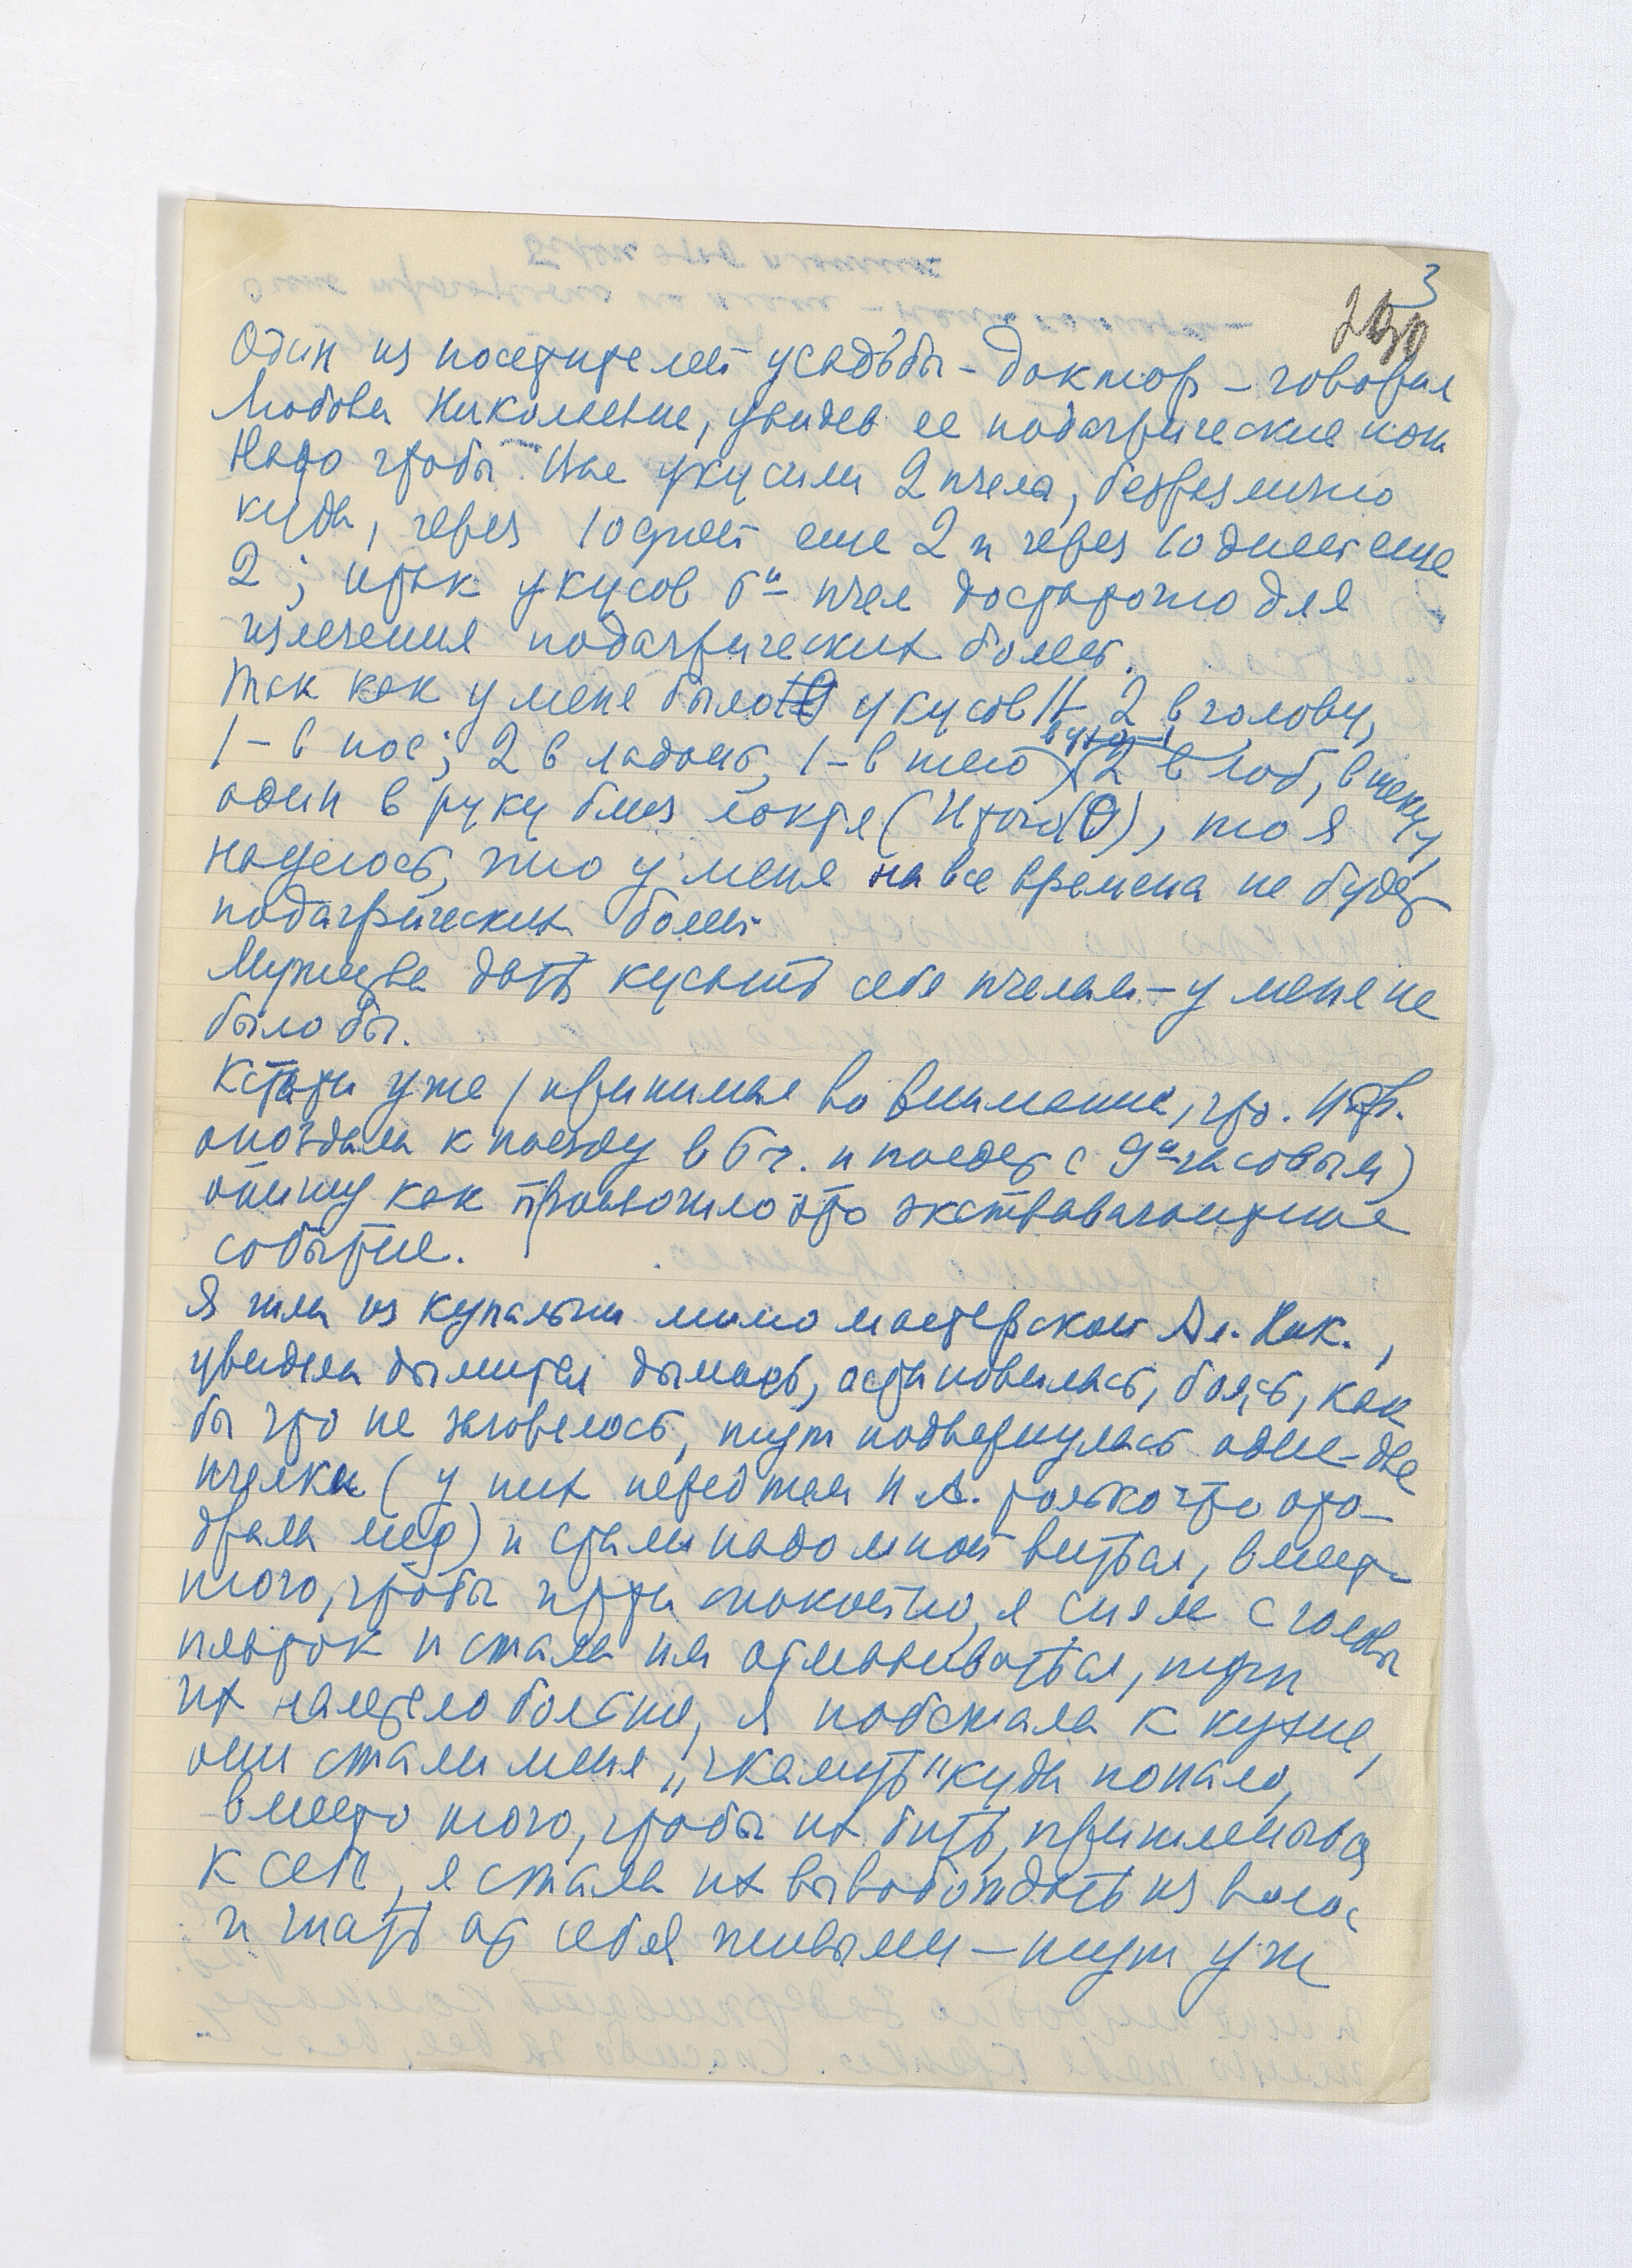 3
Один из посетителей усадьбы - доктор - говорил
Любови Николаевне, увидев ее подагрические ноги
Надо чтобы Вас укусили 2 пчелы, безразлично
куда, через 10 дней еще 2 и через 10 дней еще
2; итак укусов 6и пчел достаточно для
излечения подагрических болей.
Так как у меня было укусов 11 - 2 в голову,
1 - в нос; 2 в ладонь, 1 - в шею, 2 в лоб, в щеку 1,
в ухо - 1
один в руку близ локтя (Итого), то я
надеюсь, что у меня на все времена не будет
подагрических болей.
Мужества дать кусать себя пчелам - у меня не
было бы.
Кстати уже (принимая во внимание, что.
опоздала к поезду в 6 ч. и поедет с 9и часовым)
опишу как произошло это экстравагантное
событие.
Я шла из купальни мимо мастерской Ал. Ник.,
увидела дымится дымарь, остановилась, боясь, как
бы что не загорелось, тут подвернулась одна-две
пчелки (у них перед тем Н. А. только что ото-
брала мед) и стали надо мной виться, вместо
того, чтобы идти спокойно, я сняла с головы
платок и стала им отмахиваться, тут
их налетело больше, я побежала к кухне,
они стали меня „жалить" куда попало,
вместо того, чтобы их бить, пришлепывая
к себе, я стала их высвобождать из волос
и гнать от себя живыми - тут уж